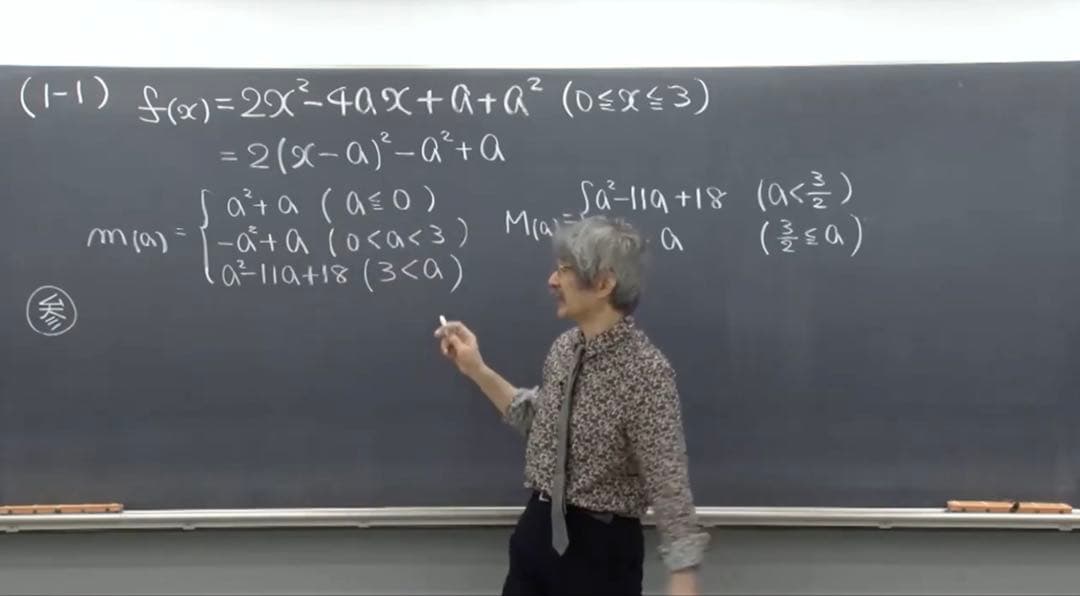 (1-1) f(x)=2x²-4ax+a+a² (0≦x≦3)
=2(x-a)²-a²+a
m(a)={a²+a (a≦0)
-a²+a (0<a<3)
a²-11a+18 (3<a)
M(a)={a²-11a+18 (a<3/2)
a (3/2≦a)
参